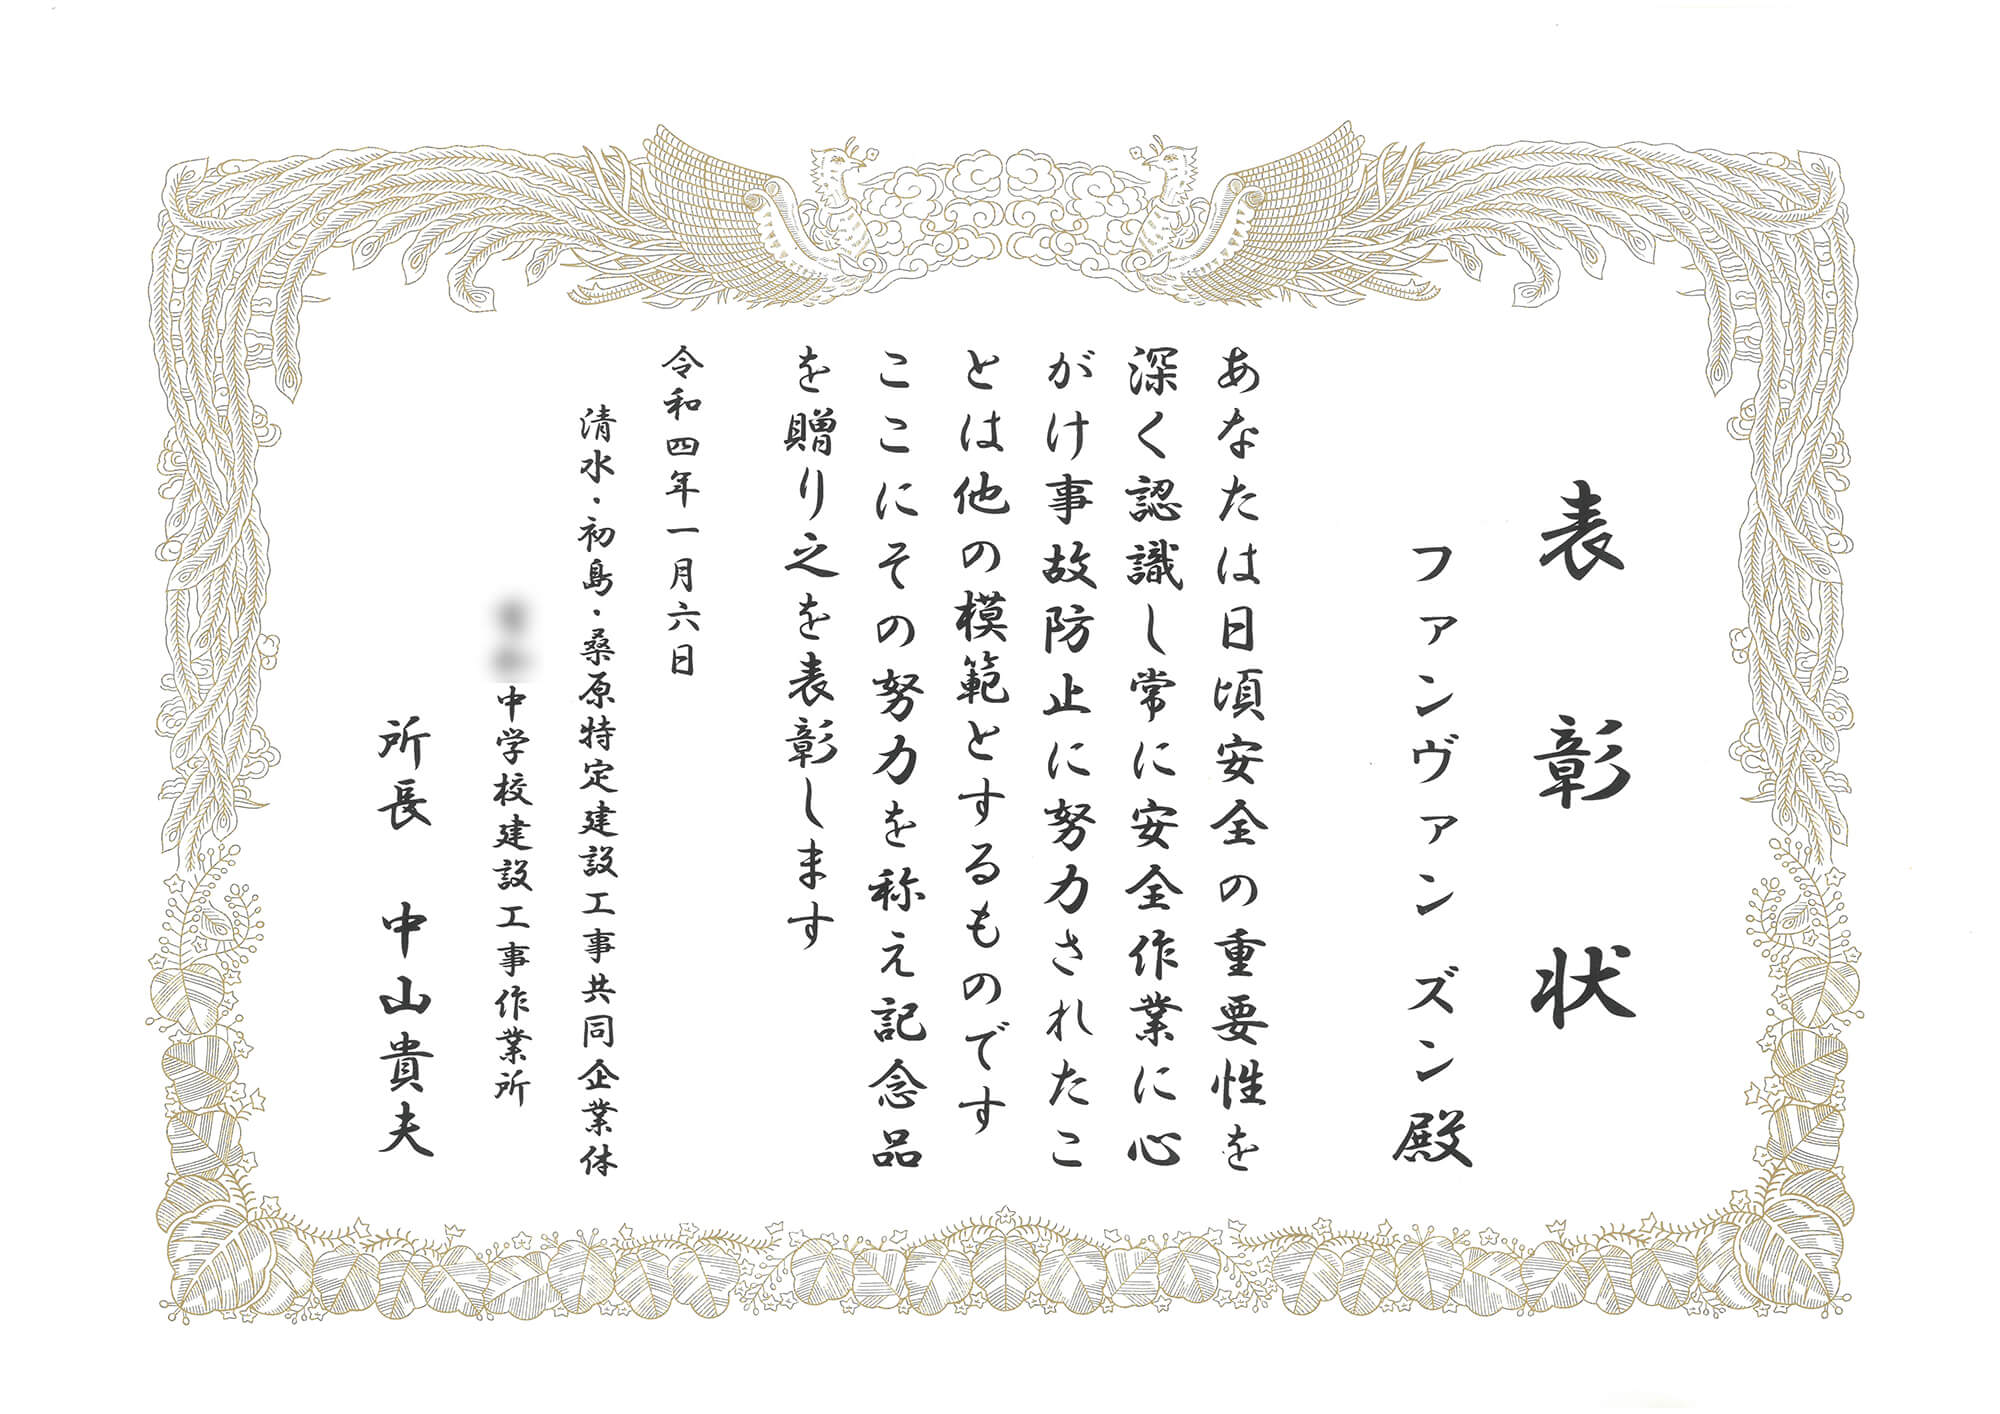 表彰状
ファンヴァン ズン 殿
あなたは日頃安全の重要性を
深く認識し常に安全作業に心
がけ事故防止に努力されたこ
とは他の模範とするものです
ここにその努力を称え記念品
を贈り之を表彰します
令和四年一月六日
清水・初島・桑原特定建設工事共同企業体
中学校建設工事作業所
所長 中山貴夫